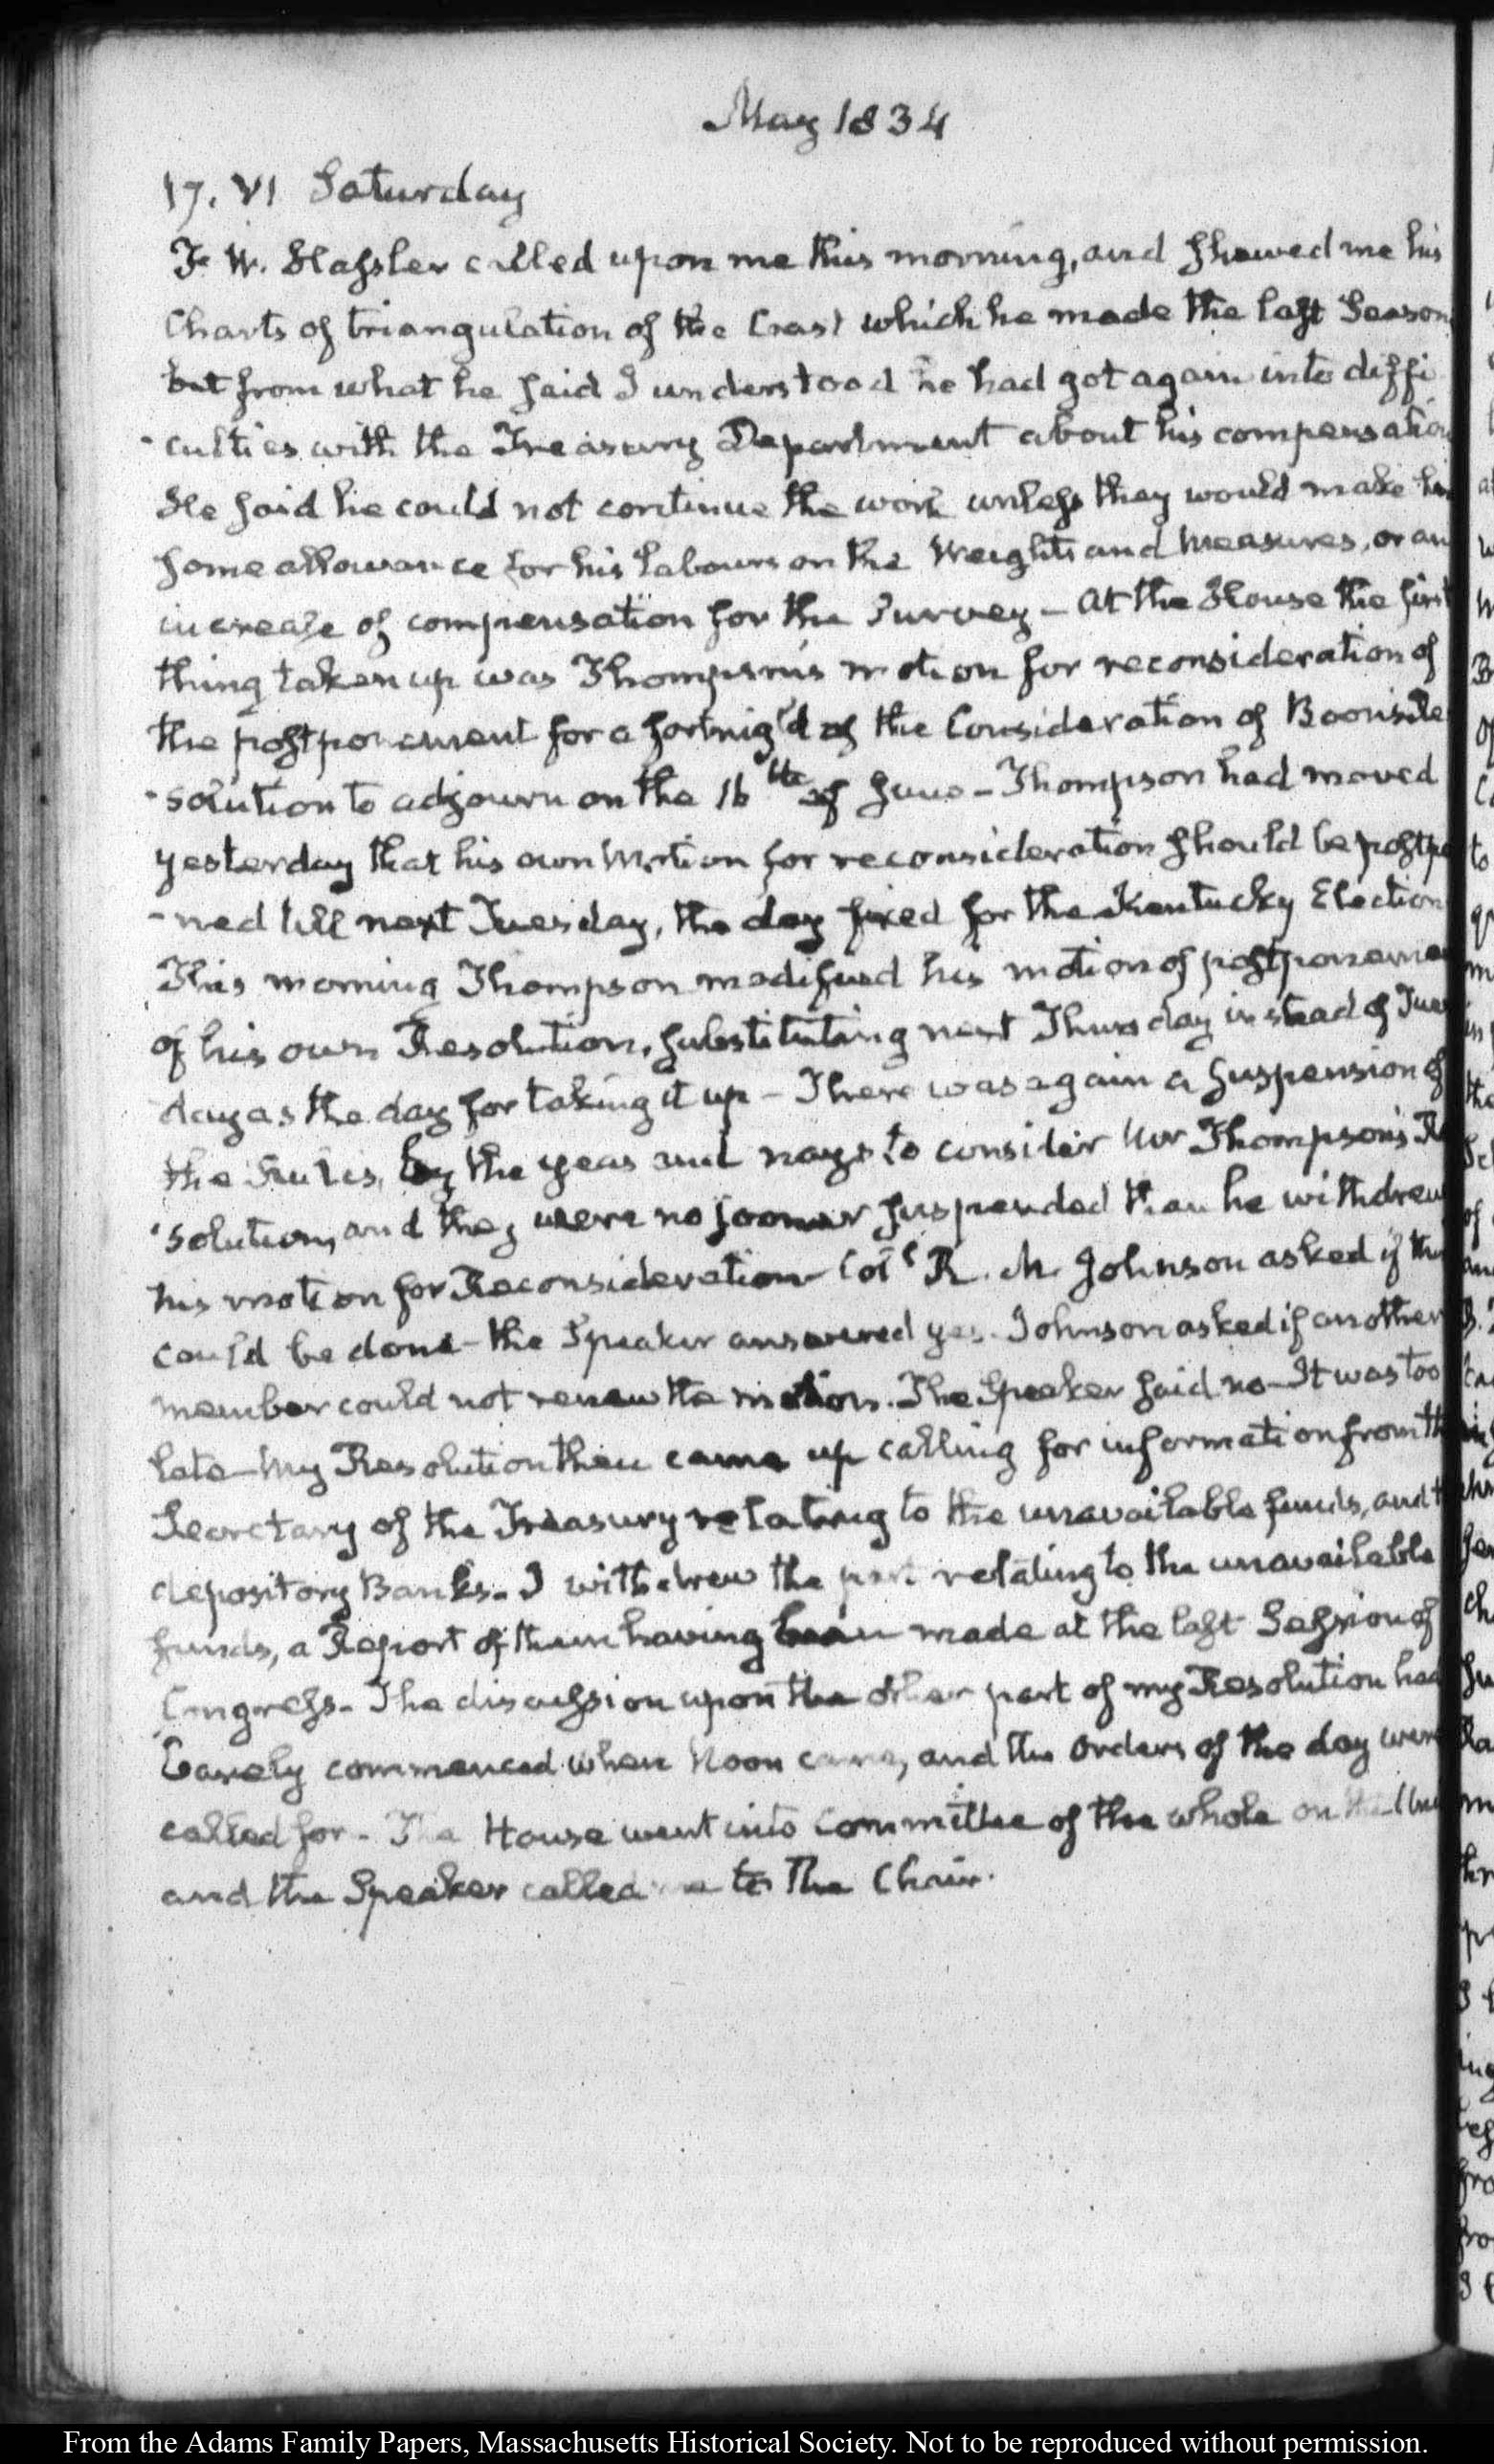 May 1834
17. VI Saturday
F. W. Hassler called upon me this morning, and shewed me his
Charts of triangulation of the Coast which he made the last Season
but from what he said I understood he had got again into diffi
-culties with the Treasury Department about his compensation
He said he could not continue the work unless they would make him
some allowance for his labours on the Weights and Measures, or an
increase of compensation for the Survey — At the House the first
thing taken up was Thompson's motion for reconsideration of
the postponement for a fortnight of the Consideration of Boon's Re
-solution to adjourn on the 16th of June — Thompson had moved
yesterday that his own Motion for reconsideration should be postpo
-ned till next Tuesday, the day fixed for the Kentucky Election
This morning Thompson modified his motion of postponement
of his own Resolution, substituting next Thursday instead of Tues
day as the day for taking it up — There was again a suspension of
the Rules, by the yeas and nays to consider Mr Thompson's Re
-solution, and they were no sooner suspended than he withdrew
his motion for Reconsideration — Col. R. M. Johnson asked if this
could be done — the Speaker answered yes. Johnson asked if another
member could not renew the motion. The Speaker said no — It was too
late — My Resolution then came up calling for information from the
Secretary of the Treasury relating to the unavailable funds, and
depository Banks — I withdrew the part relating to the unavailable
funds, a Report of them having been made at the last Session of
Congress — The discussion upon the other part of my Resolution had
barely commenced when Noon came, and the Orders of the day were
called for — The House went into Committee of the whole on the
and the Speaker called me to the Chair.
From the Adams Family Papers, Massachusetts Historical Society. Not to be reproduced without permission.